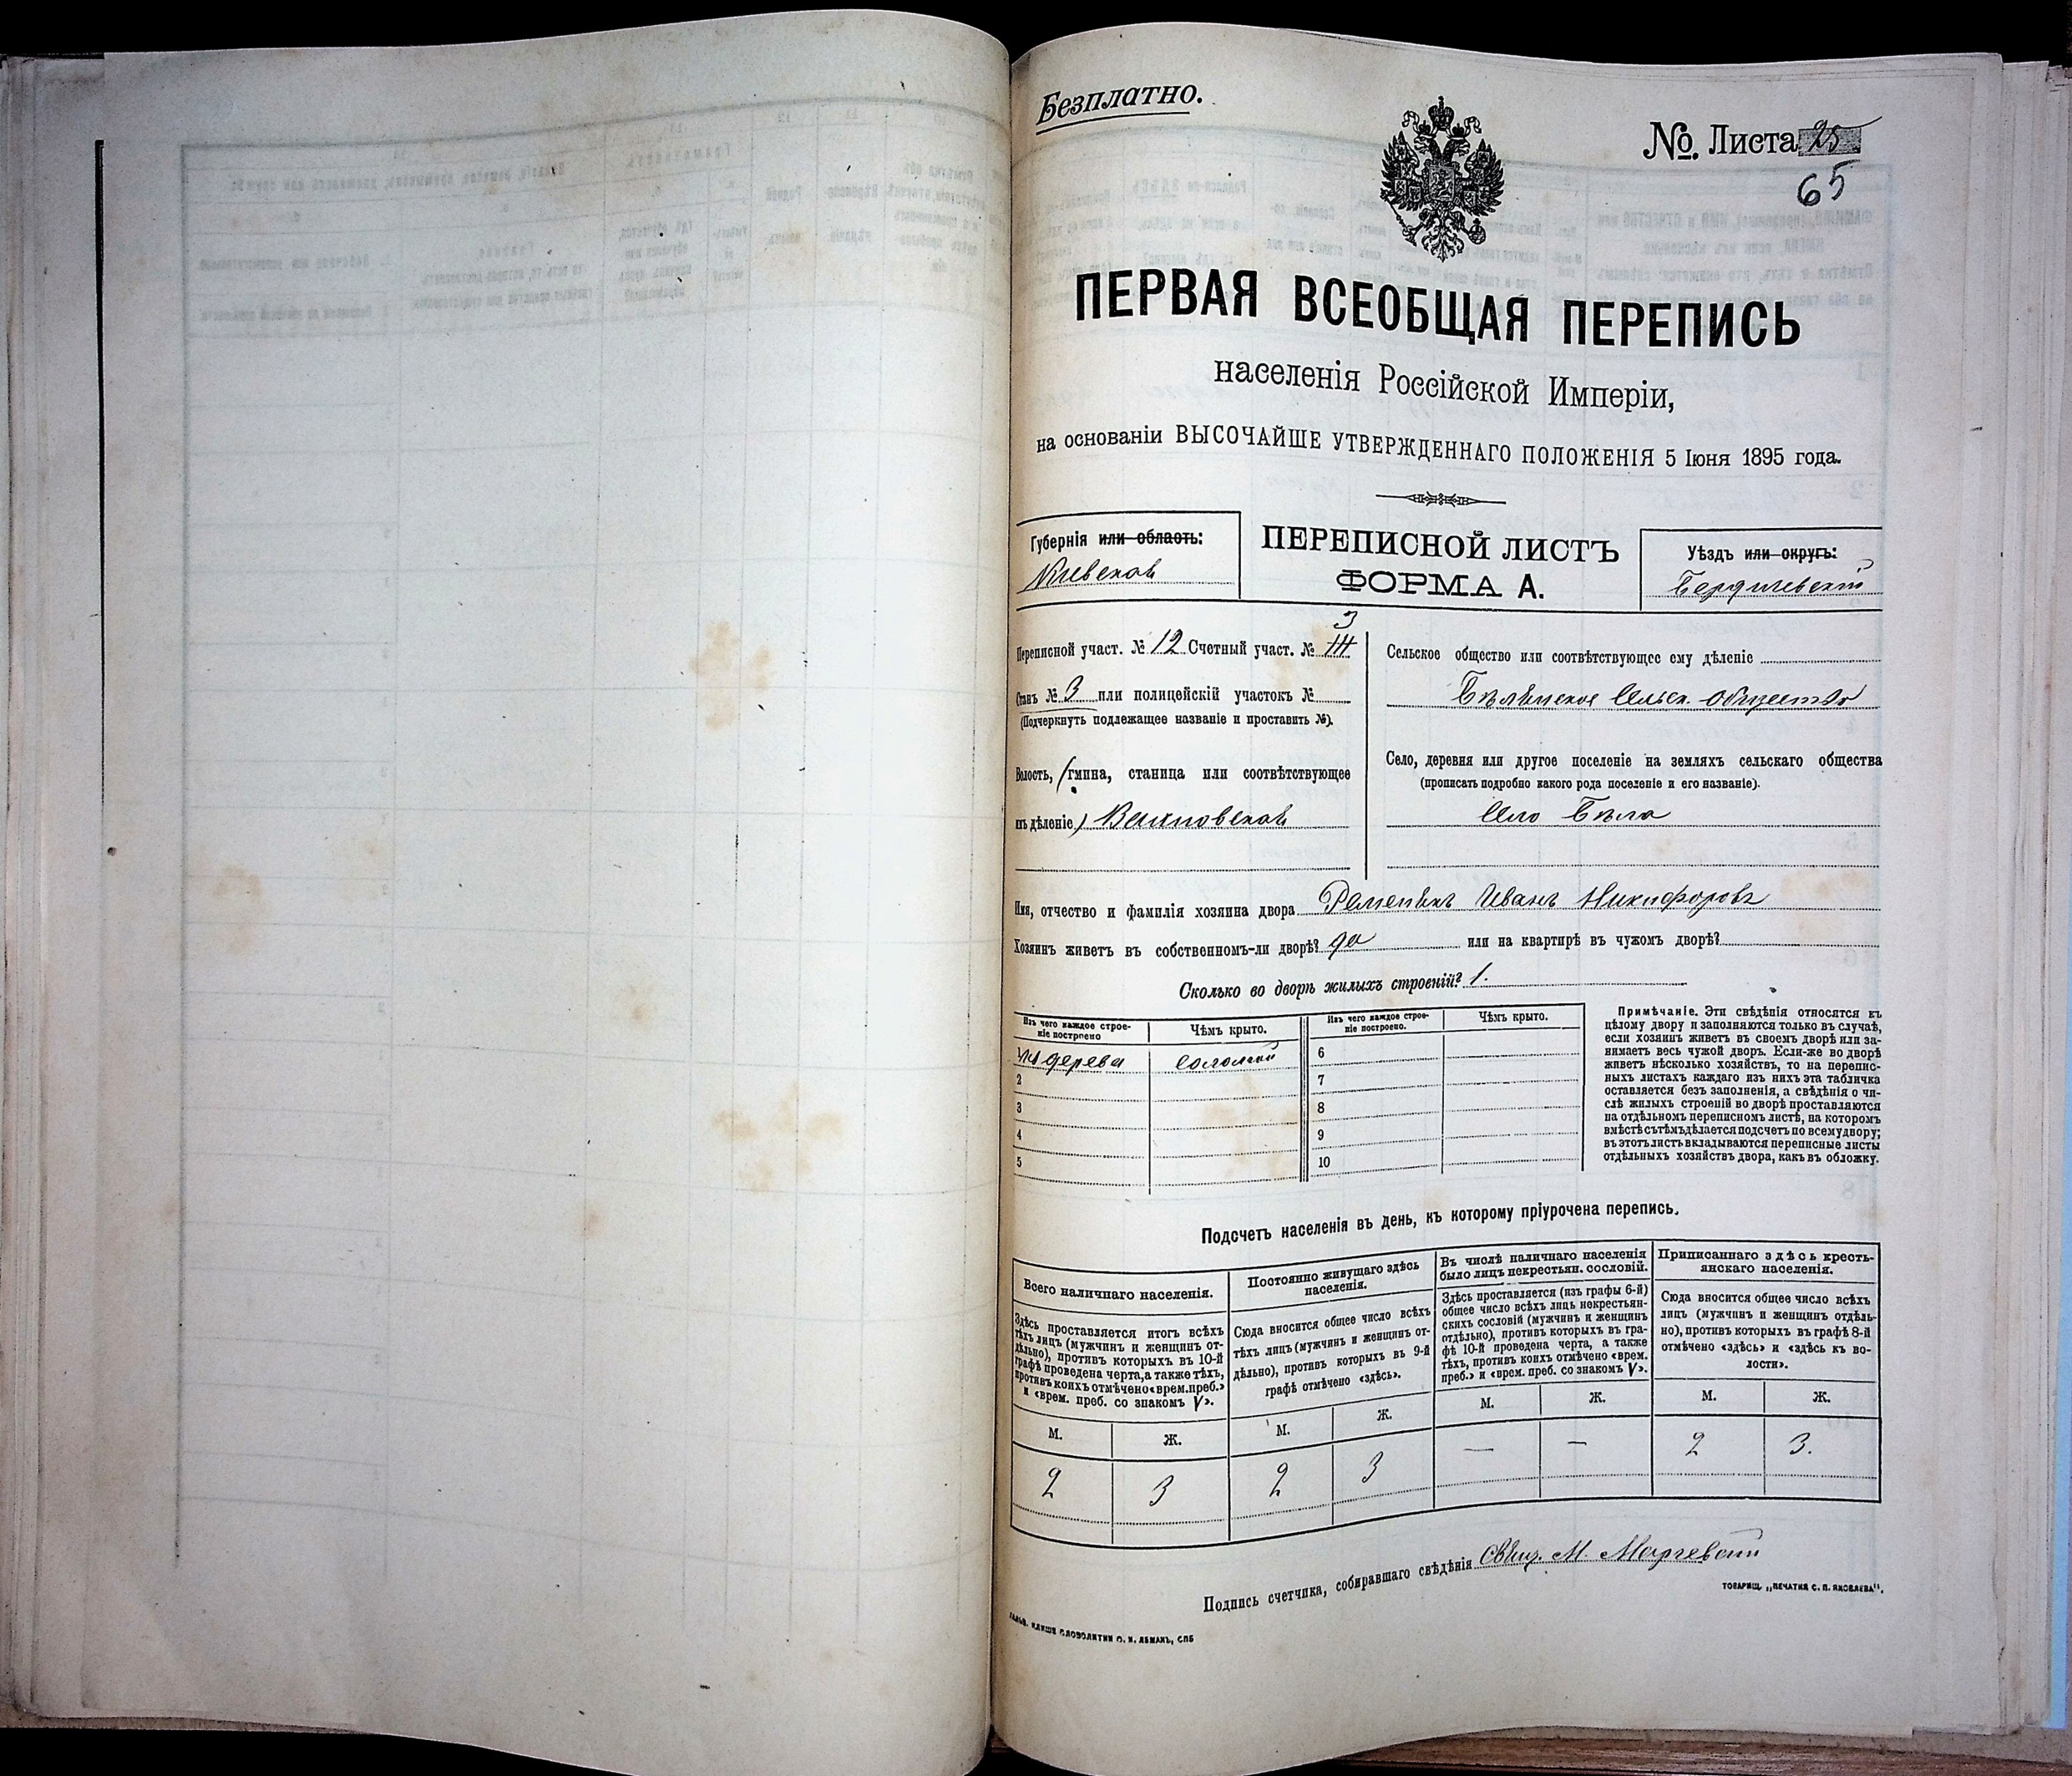 Безплатно.
№ Листа 25
65
ПЕРВАЯ ВСЕОБЩАЯ ПЕРЕПИСЬ
населенія Россійской Имперіи,
на основаніи ВЫСОЧАЙШЕ УТВЕРЖДЕННАГО ПОЛОЖЕНІЯ 5 Іюня 1895 года.
Губернія или область:
Кіевская
ПЕРЕПИСНОЙ ЛИСТЪ
ФОРМА А.
Уѣздъ или округъ:
Бердичевскій
3
Переписной участ. № 12 Счетный участ. №
Станъ № 3 или полицейскій участокъ №
(Подчеркнуть подлежащее названіе и проставить №).
Волость, (гмина, станица или соотвѣтствующее
имъ дѣленіе)
Сельское общество или соотвѣтствующее ему дѣленіе
Сельск. Общество
Село, деревня или другое поселеніе на земляхъ сельскаго общества
(прописать подробно какого рода поселеніе и его названіе).
Село Бѣла
Имя, отчество и фамилія хозяина двора Иванъ Никифоровъ
Хозяинъ живетъ въ собственномъ-ли дворѣ? да или на квартирѣ въ чужомъ дворѣ?
Сколько во дворѣ жилыхъ строеній? 1.
Изъ чего каждое строе-
ніе построено
Чѣмъ крыто.
Изъ чего каждое строе-
ніе построено.
Чѣмъ крыто.
1 Из дерева соломой 6
2 7
3 8
4 9
5 10
Примѣчаніе. Эти свѣдѣнія относятся къ
цѣлому двору и заполняются только въ случаѣ,
если хозяинъ живетъ въ своемъ дворѣ или за-
нимаетъ весь чужой дворъ. Если-же во дворѣ
живетъ нѣсколько хозяйствъ, то на перепис-
ныхъ листахъ каждаго изъ нихъ эта табличка
оставляется безъ заполненія, а свѣдѣнія о чи-
слѣ жилыхъ строеній во дворѣ проставляются
на отдѣльномъ переписномъ листѣ, на которомъ
вмѣстѣ съ тѣмъ дѣлается подсчетъ по всему двору;
въ этотъ листъ вкладываются переписные листы
отдѣльныхъ хозяйствъ двора, какъ въ обложку.
Подсчетъ населенія въ день, къ которому пріурочена перепись.
Всего наличнаго населенія.
Здѣсь проставляется итогъ всѣхъ
тѣхъ лицъ (мужчинъ и женщинъ от-
дѣльно), противъ которыхъ въ 10-й
графѣ проведена черта, а также тѣхъ,
противъ коихъ отмѣчено «врем. преб.»
и «врем. преб. со знакомъ V».
М. Ж.
2 3
Постоянно живущаго здѣсь
населенія.
Сюда вносится общее число всѣхъ
тѣхъ лицъ (мужчинъ и женщинъ от-
дѣльно), противъ которыхъ въ 9-й
графѣ отмѣчено «здѣсь».
М. Ж.
2 3
Въ числѣ наличнаго населенія
было лицъ некрестьян. сословій.
Здѣсь проставляется (изъ графы 6-й)
общее число всѣхъ лицъ некрестьян-
скихъ сословій (мужчинъ и женщинъ
отдѣльно), противъ которыхъ въ гра-
фѣ 10-й проведена черта, а также
тѣхъ, противъ коихъ отмѣчено «врем.
преб.» и «врем. преб. со знакомъ V».
М. Ж.
— —
Приписаннаго здѣсь кресть-
янскаго населенія.
Сюда вносится общее число всѣхъ
лицъ (мужчинъ и женщинъ отдѣль-
но), противъ которыхъ въ графѣ 8-й
отмѣчено «здѣсь» и «здѣсь къ во-
лости».
М. Ж.
2 3.
Подпись счетчика, собиравшаго свѣдѣнія М.
ТОВАРИЩ. „ПЕЧАТНЯ С. П. ЯКОВЛЕВА".
КЛИШЕ СЛОВОЛИТНИ О. И. ЛЕМАНЪ, СПБ